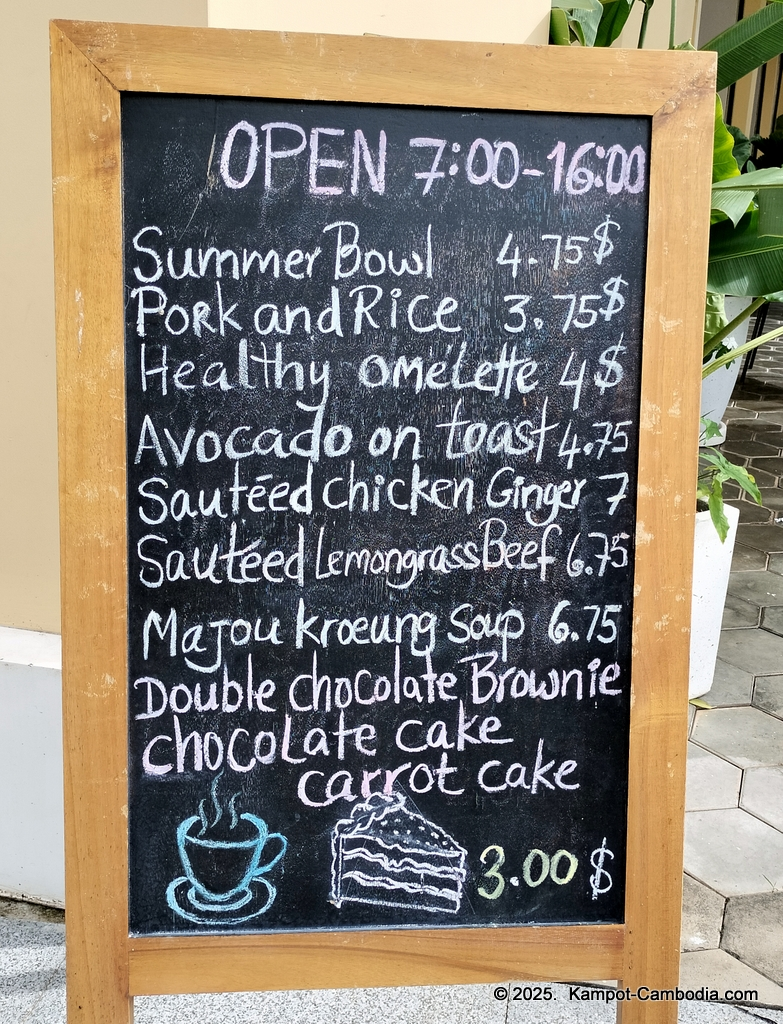 OPEN 7:00-16:00
Summer Bowl 4.75$
Pork and Rice 3.75$
Healthy omélette 4$
Avocado on toast 4.75
Sautéed chicken Ginger 7
Sautéed Lemongrass Beef 6.75
Majou kroeung soup 6.75
Double chocolate Brownie
chocolate cake
carrot cake
3.00 $
© 2025. Kampot-Cambodia.com